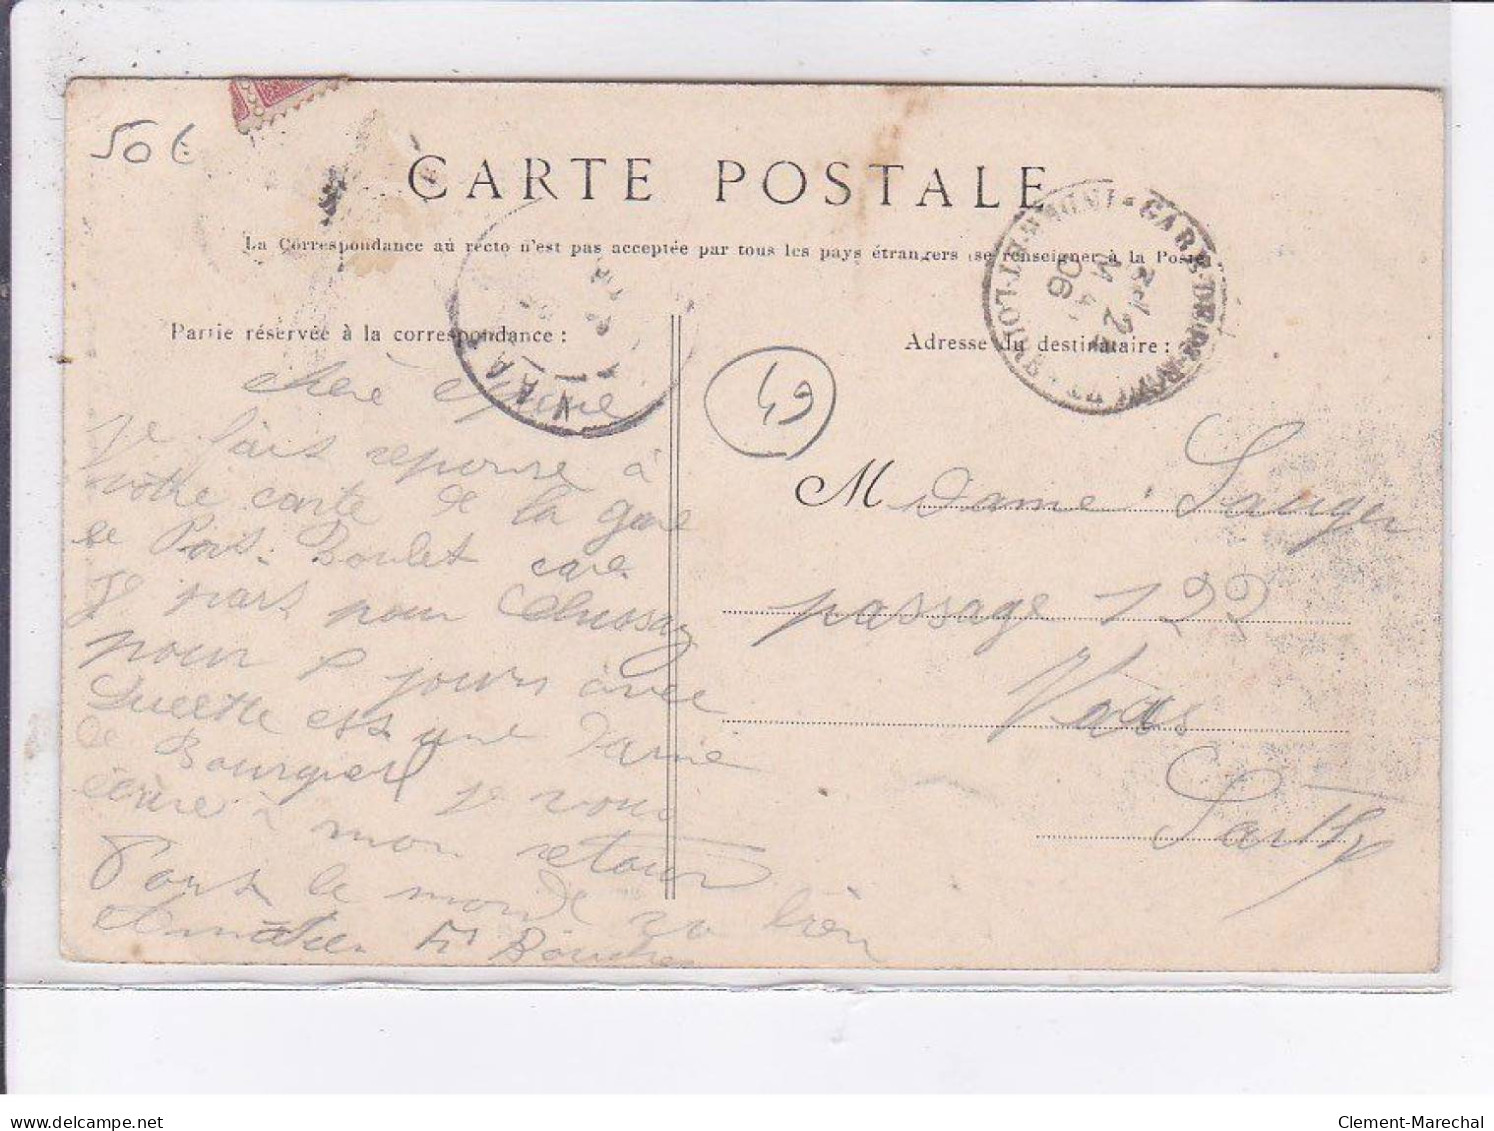 50€
CARTE POSTALE
La Correspondance au recto n'est pas acceptée par tous les pays étrangers (se renseigner à la Poste)
Partie réservée à la correspondance :
Adresse du destinataire :
49
chere
je fait reponse à
votre carte de la gare
de Port-Boulet care
je part pour Chussay
pour 8 jours avec
Lucette est une Dame
de Bourgueil je vous
écrire à mon retour
Tout le monde va bien
Bouchez
Madame Sauger
passage 122
Vaas
Sarthe
GARE
06
VAAS
Clement-Marechal